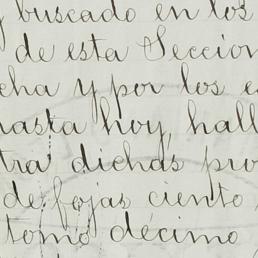 y buscado en los
de esta Seccion
cha y por los es
hasta hoy, hall
tra dichas pro
de fojas ciento
tomo décimo